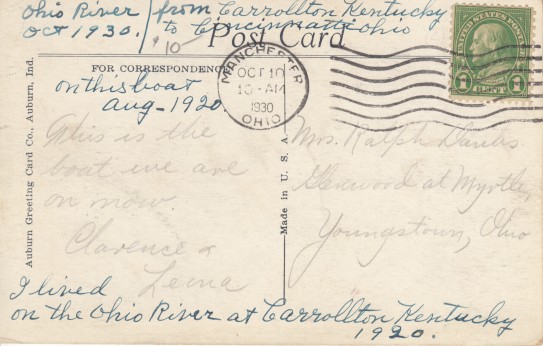 Ohio River / from Carrollton Kentucky
Oct 1930. / to Cincinnati Ohio
10-
Post Card
FOR CORRESPONDENCE
MANCHESTER
OCT 10
10-AM
1930
OHIO
UNITED STATES POSTAGE
FRANKLIN
1 CENT 1
on this boat
Aug-1920
This is the
boat we are
on now.
Clarence &
Leona
Mrs. Ralph
Glenwood at Myrtle,
Youngstown, Ohio
Auburn Greeting Card Co., Auburn, Ind.
Made in U. S. A.
I lived
on the Ohio River at Carrollton Kentucky
1920.